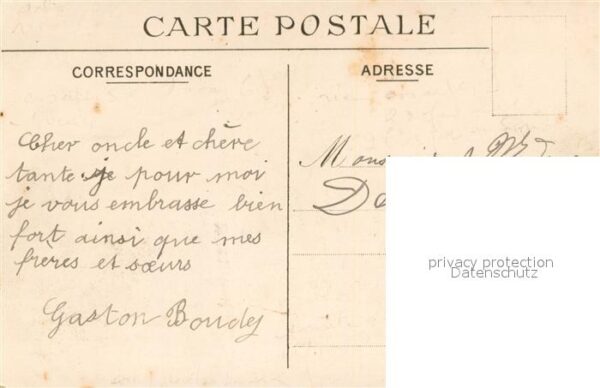 CARTE POSTALE
CORRESPONDANCE
ADRESSE
Cher oncle et chère
tante je pour moi
je vous embrasse bien
fort ainsi que mes
frères et sœurs
Gaston Boudey
privacy protection
Datenschutz